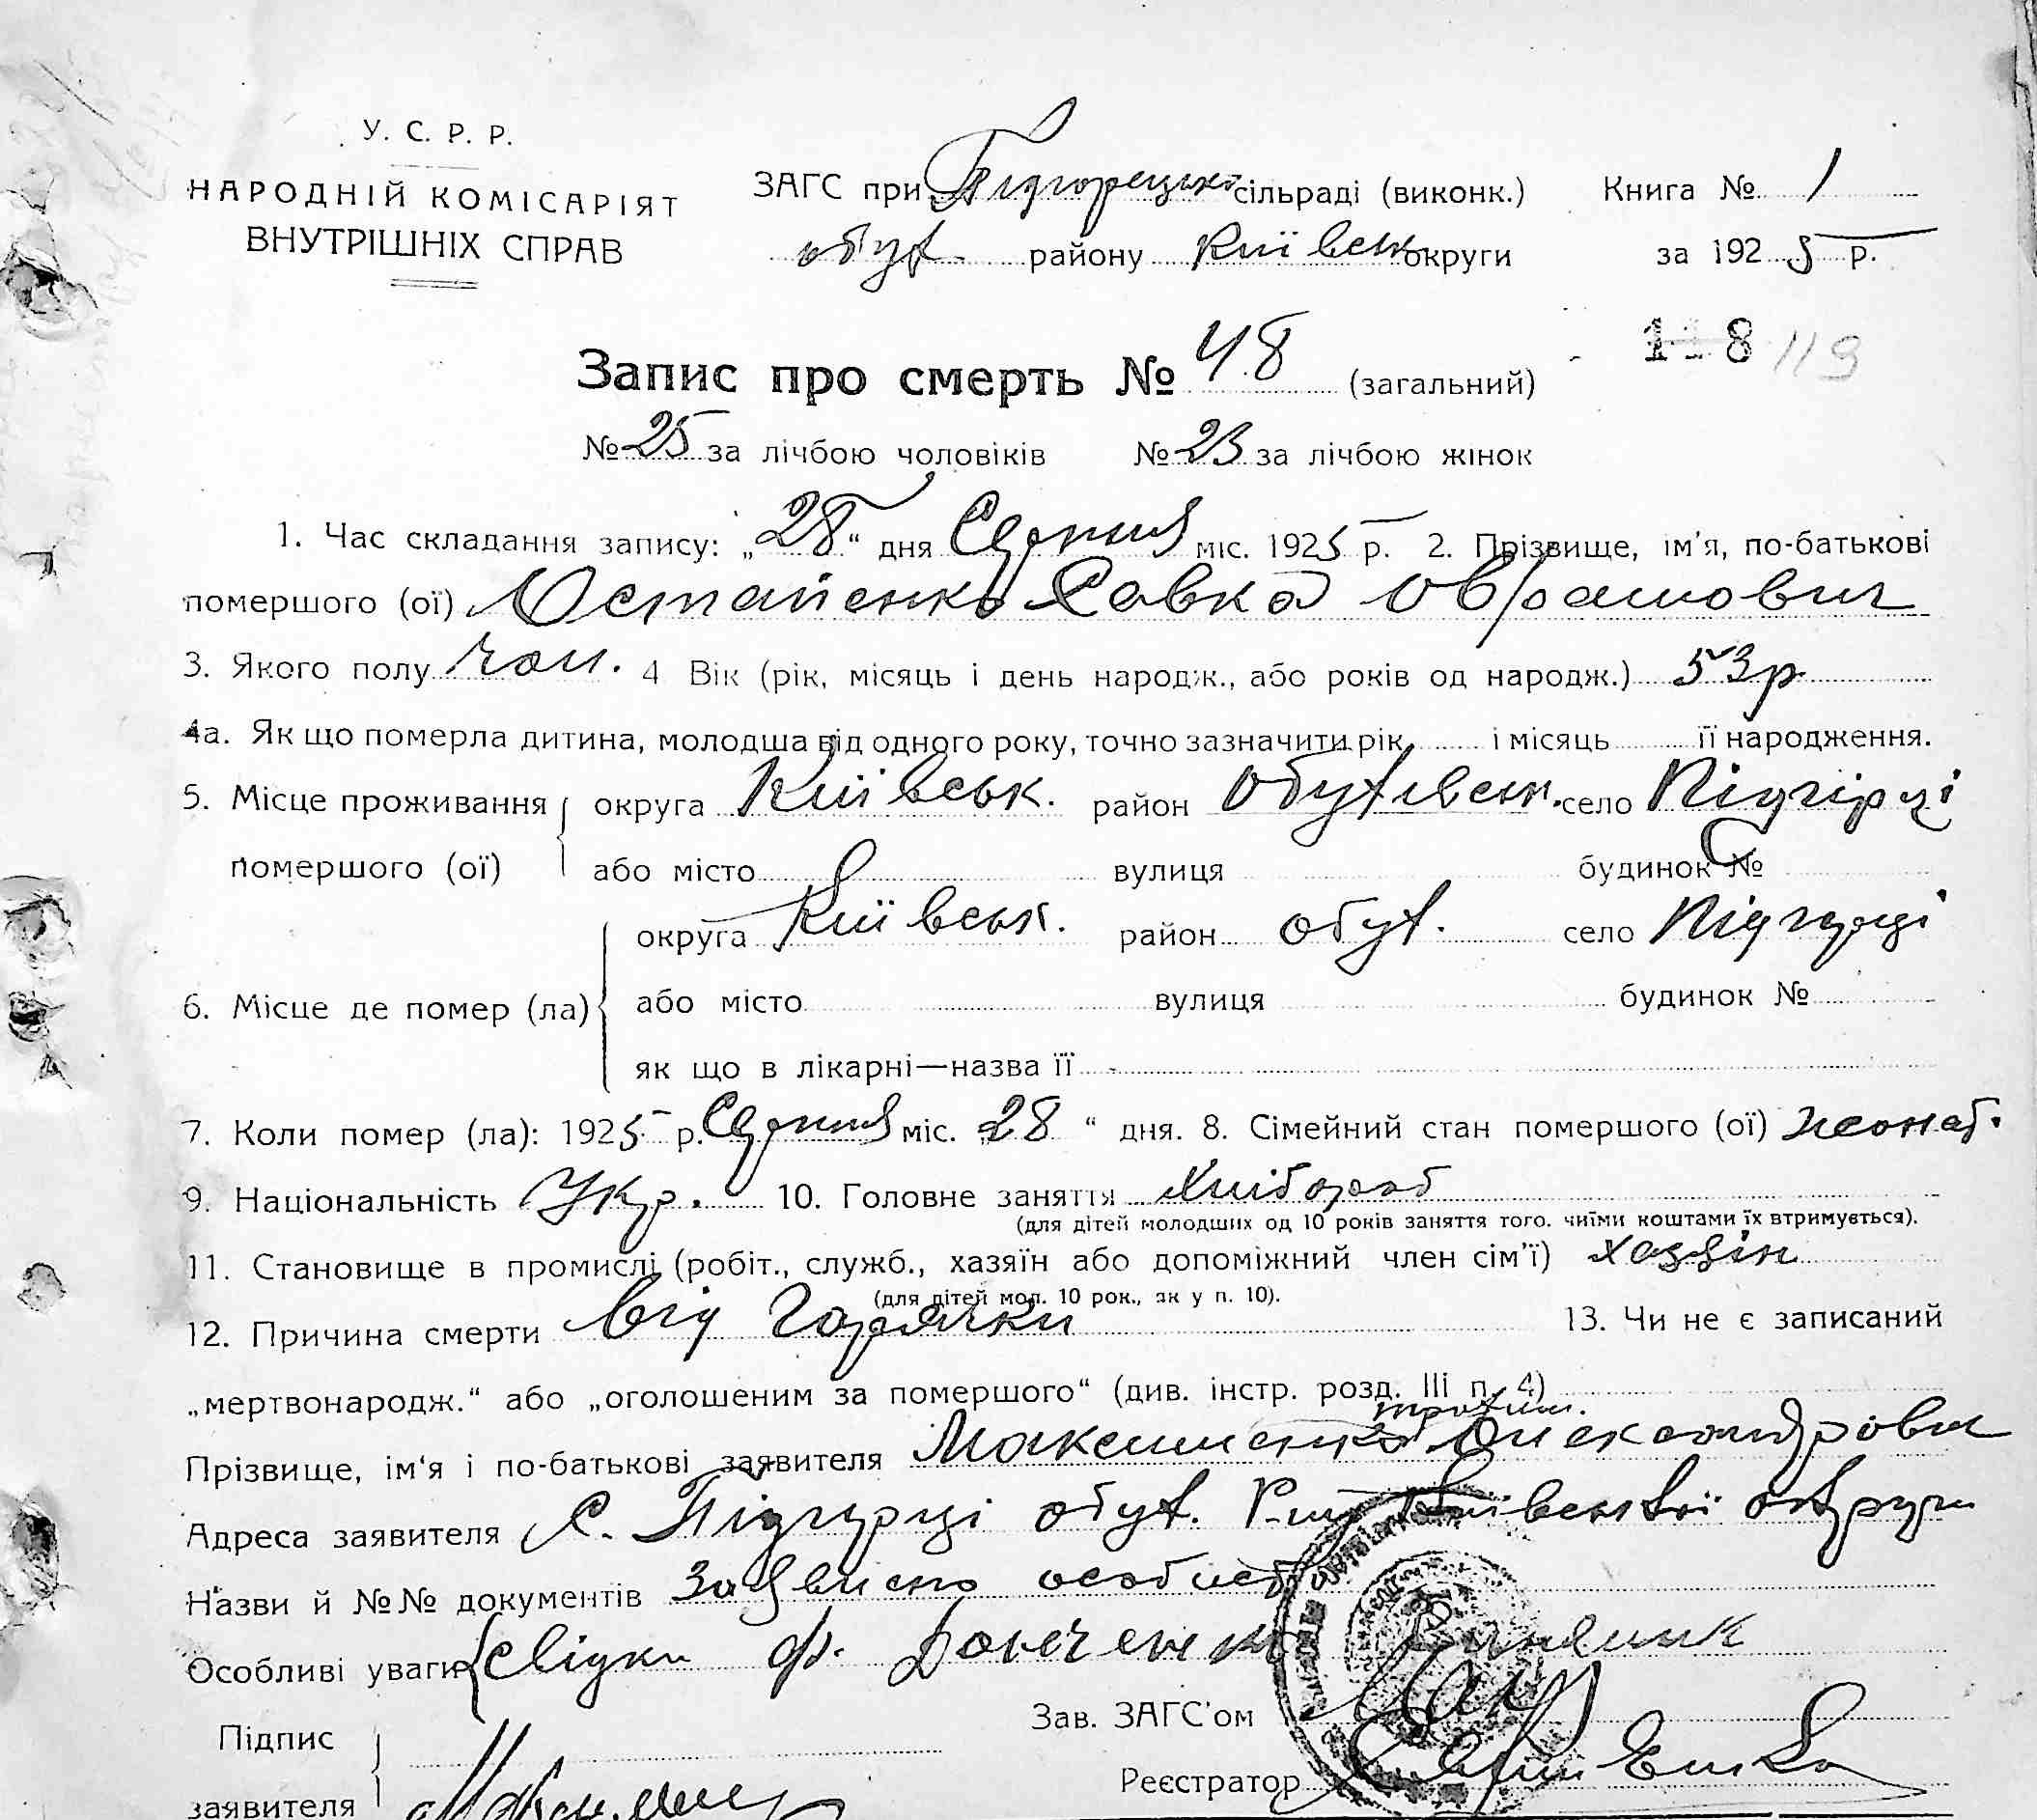 У. С. Р. Р.
НАРОДНІЙ КОМІСАРІЯТ
ВНУТРІШНІХ СПРАВ
ЗАГС при Підгорецько сільраді (виконк.)
обух. району Київськ округи
Книга № 1
за 1925 р.
118 119
Запис про смерть № 48 (загальний)
№ 25 за лічбою чоловіків № 23 за лічбою жінок
1. Час складання запису: „28“ дня Серпня міс. 1925 р. 2. Прізвище, ім'я, по-батькові
помершого (ої) Остапенко Савка Оврамович
3. Якого полу чол. 4 Вік (рік, місяць і день народж., або років од народж.) 53р
4а. Як що померла дитина, молодша від одного року, точно зазначити рік і місяць її народження.
5. Місце проживання помершого (ої) округа Київськ. район Обухівськ. село Підгірці
або місто вулиця будинок №
6. Місце де помер (ла) округа Київськ. район обух. село Підгурці
або місто вулиця будинок №
як що в лікарні—назва її
7. Коли помер (ла): 1925 р. Серпня міс. 28 “ дня. 8. Сімейний стан помершого (ої) жонат.
9. Національність Укр. 10. Головне заняття Хлібороб
(для дітей молодших од 10 років заняття того. чиїми коштами їх втримується).
11. Становище в промислі (робіт., служб., хазяїн або допоміжний член сім'ї) хазяін
(для дітей мол. 10 рок., як у п. 10).
12. Причина смерти від Горячки 13. Чи не є записаний
„мертвонародж.“ або „оголошеним за помершого“ (див. інстр. розд. III п. 4)
Прізвище, ім'я і по-батькові заявителя Максименко Олександрови
Адреса заявителя С. Підгурці обух. Київської округи
Назви й №№ документів Заявлено особисто
Особливі уваги свідки ф.
Підпис
заявителя
Зав. ЗАГС'ом
Реєстратор